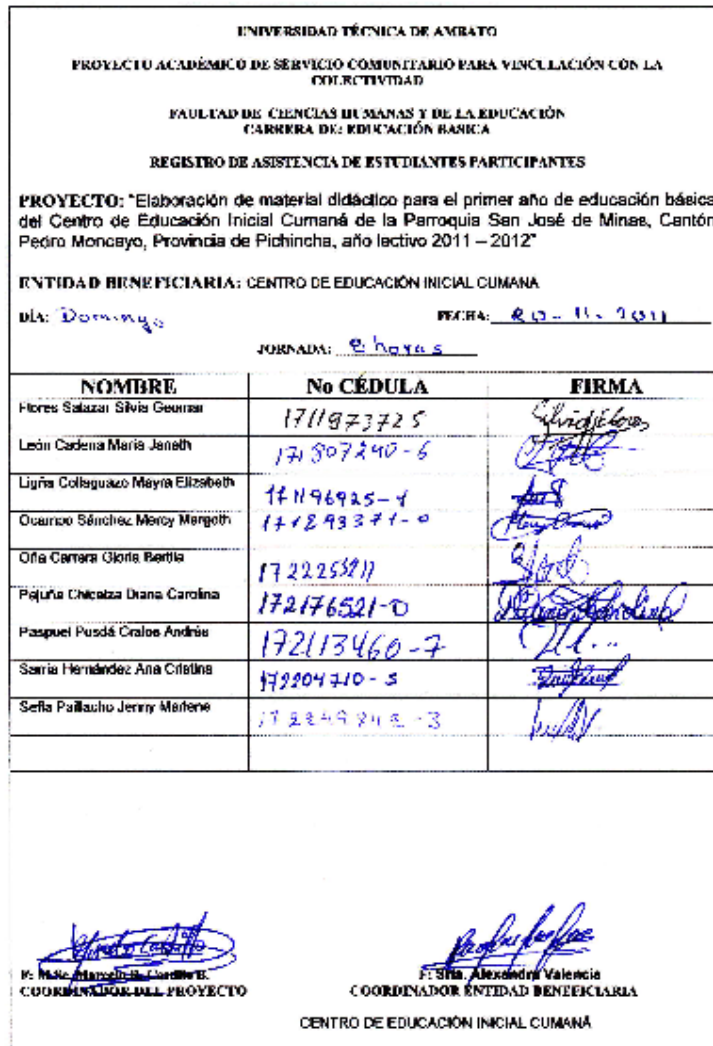 UNIVERSIDAD TÉCNICA DE AMBATO
PROYECTO ACADÉMICO DE SERVICIO COMUNITARIO PARA VINCULACIÓN CON LA
COLECTIVIDAD
FAULTAD DE CIENCIAS HUMANAS Y DE LA EDUCACIÓN
CARRERA DE: EDUCACIÓN BASICA
REGISTRO DE ASISTENCIA DE ESTUDIANTES PARTICIPANTES
PROYECTO: "Elaboración de material didáctico para el primer año de educación básica
del Centro de Educación Inicial Cumaná de la Parroquia San José de Minas, Cantón
Pedro Moncayo, Provincia de Pichincha, año lectivo 2011 – 2012"
ENTIDAD BENEFICIARIA: CENTRO DE EDUCACIÓN INICIAL CUMANÁ
DÍA: Domingo FECHA: 20-11-2011
JORNADA: 8 horas
NOMBRE No CÉDULA FIRMA
Flores Salazar Silvia Geomar 1711973725
León Cadena María Janeth 171807240-6
Ligña Collaguazo Mayra Elizabeth 171196925-4
Ocampo Sánchez Mercy Margoth 171293371-0
Oña Carrera Gloria Bertila
Pajuña Chicaiza Diana Carolina 172176521-0
Paspuel Pusdá Cralos Andrés 172113460-7
Sarria Hernández Ana Cristina 172204710-5
Seflla Paillacho Jenny Marlene
F: M.Sc. Marcelo
COORDINADOR DEL PROYECTO
F: Srta. Alexandra Valencia
COORDINADOR ENTIDAD BENEFICIARIA
CENTRO DE EDUCACIÓN INICIAL CUMANÁ